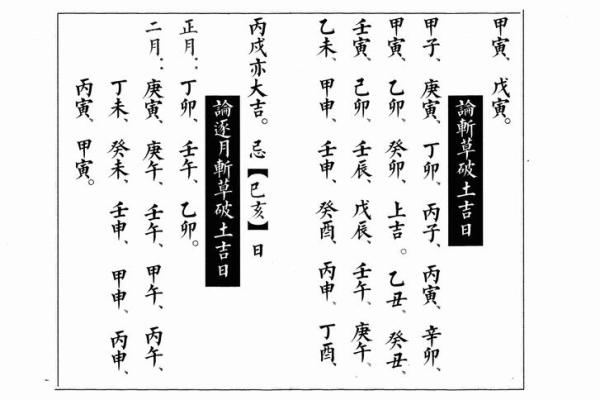 甲寅、戊寅。
論斬草破土吉日
甲子、庚寅、丁卯、丙子、丙寅、辛卯、
甲寅、乙卯、癸卯、上吉。乙丑、癸丑、
壬寅、己卯、壬辰、戊辰、壬午、庚午、
乙未、甲申、壬申、癸酉、丙申、丁酉、
丙戌亦大吉。忌【巳亥】日
論逐月斬草破土吉日
正月：丁卯、壬午、乙卯。
二月：庚寅、庚午、壬午、甲午、丙午、
丁未、癸未、壬申、甲申、丙申、
丙寅、甲寅。